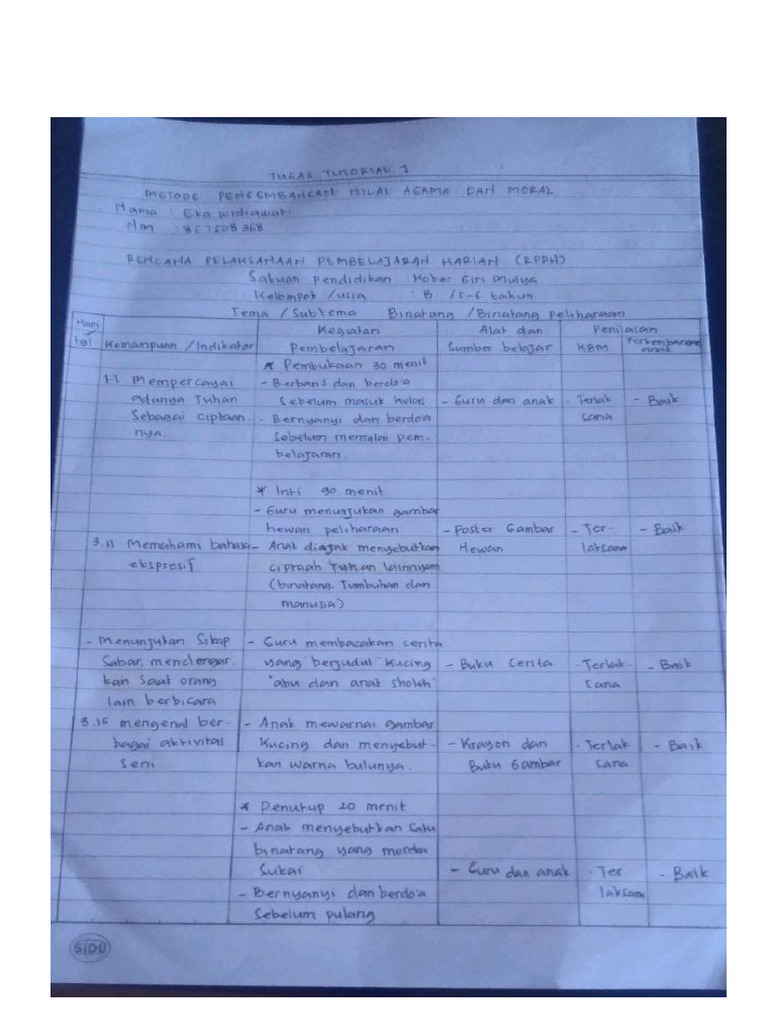 TUGAS TUTORIAL 1
METODE PENGEMBANGAN NILAI AGAMA DAN MORAL
Nama : Eka Widiawati
Nim : 857508368
RENCANA PELAKSANAAN PEMBELAJARAN HARIAN (RPPH)
Satuan Pendidikan : Kober Giri Mulya
Kelompok /usia : B /5-6 tahun
Tema /Subtema Binatang /Binatang Peliharaan
Hari Kemampuan /Indikator Kegiatan Alat dan Penilaian
Pembelajaran Sumber belajar KBM Perkembangan anak
* Pembukaan 30 menit
1.1 Mempercayai - Berbaris dan berdo'a
adanya Tuhan Sebelum masuk kelas - Guru dan anak - Terlak - Baik
Sebagai ciptaan - Bernyanyi dan berdo'a sana
nya. Sebelum memulai pem-
belajaran.
* Inti 90 menit
- Guru menunjukan gambar
hewan peliharaan - Poster Gambar - Ter- - Baik
3.11 Memahami bahasa - Anak diajak menyebutkan Hewan laksana
ekspresif ciptaan Tuhan lainnya
(binatang, Tumbuhan dan
manusia)
- Menunjukan Sikap - Guru membacakan cerita
Sabar, mendengar yang berjudul "Kucing - Buku Cerita - Terlak- - Baik
kan saat orang abu dan anak sholeh" sana
lain berbicara
3.15 mengenal ber- - Anak mewarnai gambar
bagai aktivitas Kucing dan menyebut- - Krayon dan - Terlak - Baik
Seni kan warna bulunya. Buku Gambar sana
* Penutup 20 menit
- Anak menyebutkan Satu
binatang yang mereka
Sukai - Guru dan anak - Ter - Baik
- Bernyanyi dan berdo'a laksana
Sebelum pulang
SIDU